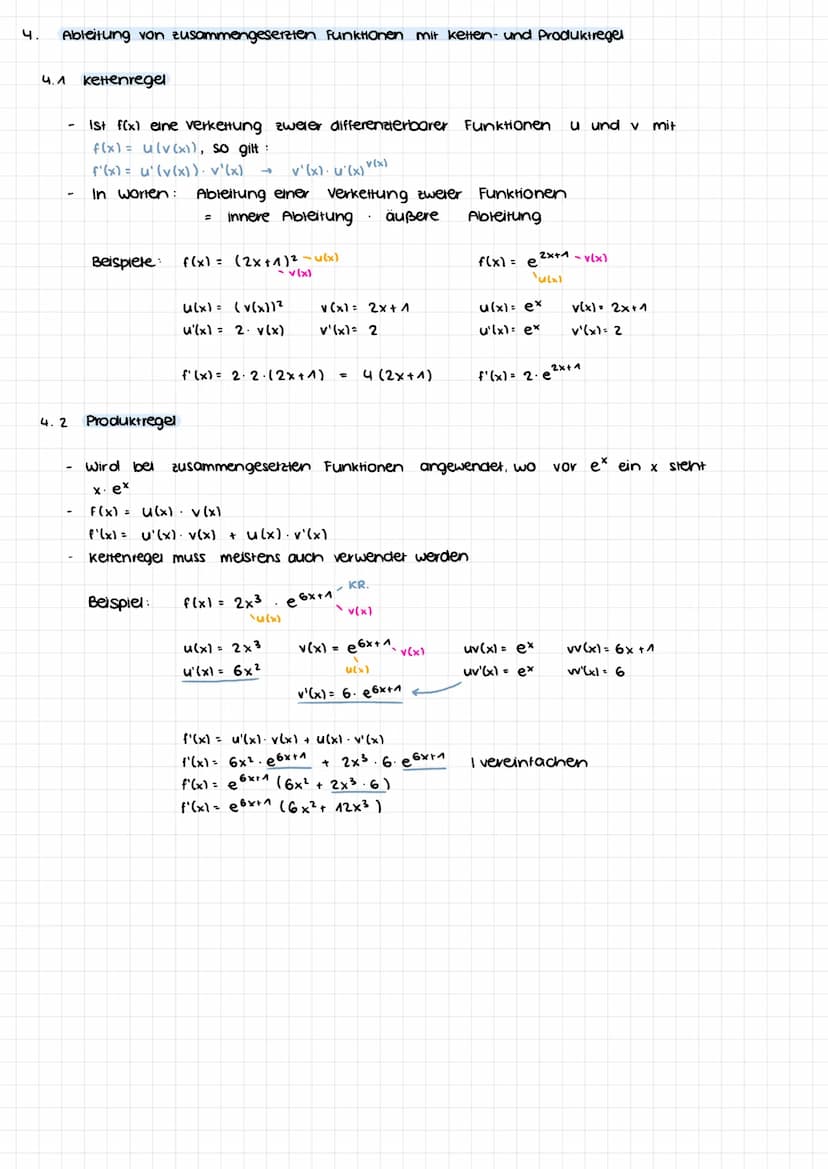 4. Ableitung von zusammengesetzten Funktionen mit Ketten- und Produktregel
4.1 Kettenregel
- Ist f(x) eine Verkettung zweier differenzierbarer Funktionen u und v mit
f(x) = u(v(x)), so gilt:
f'(x) = u'(v(x)) · v'(x) → v'(x) · u'(x)^v(x)
- In Worten: Ableitung einer Verkettung zweier Funktionen
= innere Ableitung · äußere Ableitung
Beispiele: f(x) = (2x+1)² - u(x) f(x) = e^2x+1 - v(x)
- v(x) \ u(x)
u(x) = (v(x))² v(x) = 2x+1 u(x) = e^x v(x) = 2x+1
u'(x) = 2 · v(x) v'(x) = 2 u'(x) = e^x v'(x) = 2
f'(x) = 2 · 2 · (2x+1) = 4(2x+1) f'(x) = 2 · e^2x+1
4.2 Produktregel
- Wird bei zusammengesetzten Funktionen angewendet, wo vor e^x ein x steht
x · e^x
- f(x) = u(x) · v(x)
f'(x) = u'(x) · v(x) + u(x) · v'(x)
- Kettenregel muss meistens auch verwendet werden
Beispiel: f(x) = 2x³ · e^6x+1 - KR.
\ u(x) \ v(x)
u(x) = 2x³ v(x) = e^6x+1 \ v(x) uv(x) = e^x vv(x) = 6x+1
u'(x) = 6x² u(x) uv'(x) = e^x vv'(x) = 6
v'(x) = 6 · e^6x+1 ←
f'(x) = u'(x) · v(x) + u(x) · v'(x)
f'(x) = 6x² · e^6x+1 + 2x³ · 6 · e^6x+1 | vereinfachen
f'(x) = e^6x+1 (6x² + 2x³ · 6)
f'(x) = e^6x+1 (6x² + 12x³)